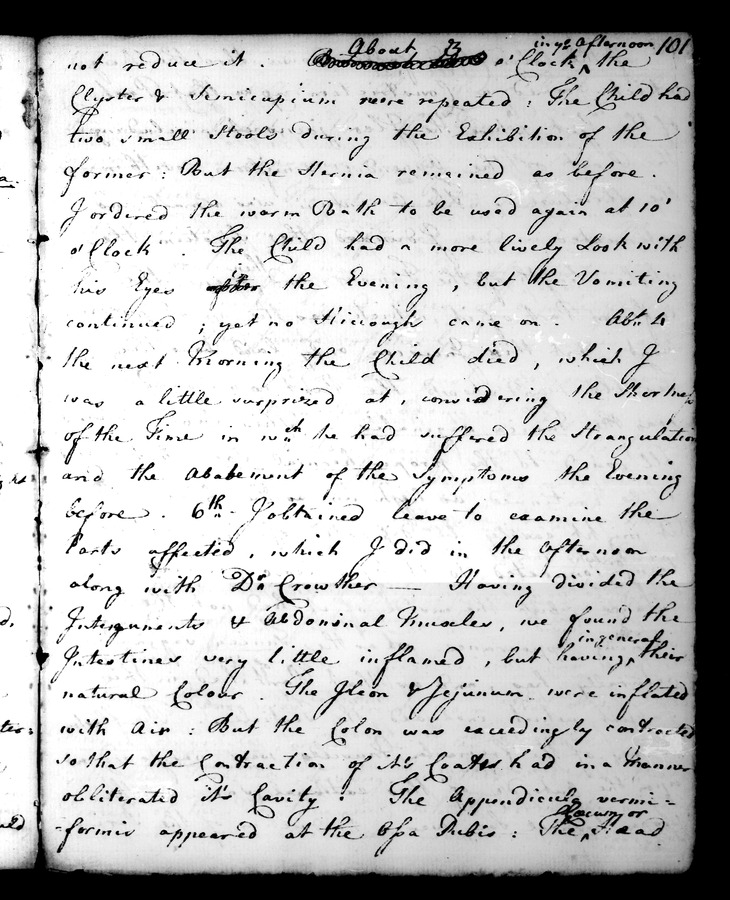 101
not reduce it. About 3 o'Clock in ye Afternoon, the
Clyster & Semicupium were repeated: The Child had
two small Stools during the Exhibition of the
former: But the Hernia remained as before.
I ordered the warm Bath to be used again at 10
o'Clock. The Child had a more lively Look with
his Eyes the Evening, but the Vomiting
continued; yet no Hiccough came on. Abt. 4
the next Morning the Child died, which I
was a little surprized at, considering the Shortness
of the Time in wch. he had suffered the Strangulation
and the Abatement of the Symptoms the Evening
before. 6th. I obtained leave to examine the
Parts affected, which I did in the afternoon
along with Dr. Crowther — Having divided the
Integuments & Abdominal Muscles, we found the
Intestines very little inflamed, but having in general their
natural Colour. The Ileon & Jejunum were inflated
with Air: But the Colon was exceedingly contracted
so that the Contraction of it's Coats had in a Manner
obliterated it's Cavity: The Appendicula vermi=
-formis appeared at the Ossa Pubis: The Caecum, or Head